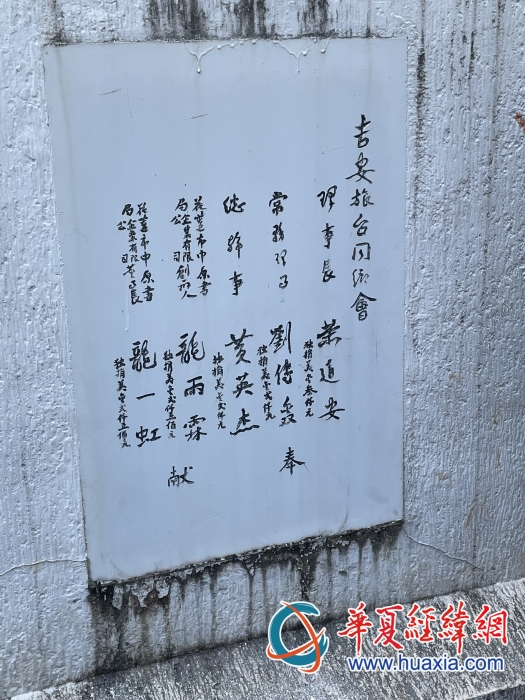 吉安旅台同鄉會
理事長 葉迪安
独捐美金叁仟元
常務理事 劉傳鑫
独捐美金弍仟元
奉
總幹事 黃英杰
独捐美金弍仟元
花蓮市中原書局企業有限公司創办人 龍雨霖
独捐美金弍仟五佰元
献
花蓮市中原書局企業有限公司董事長 龍一虹
独捐美金弍仟五佰元
華夏經緯網
www.huaxia.com